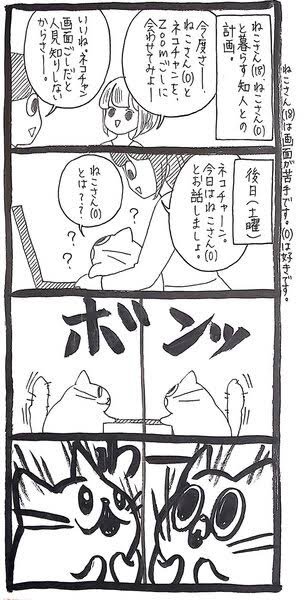 ねこさん(18)は画面が苦手です。(0)は好きです。
ねこさん(18)、ねこさん(0)
と暮らす知人との
計画。
今度さー
ねこさん(0)と
ネコチャンを、
Zoomごしに
合わせてみよー
いいね。ネコチャン
画面ごしだと
人見知りしない
からさー。
後日(土曜)
ネコチャーン。
今日はねこさん(0)
とお話しましょ。
ねこさん(0)
とは??
?
?
?
ボンッ